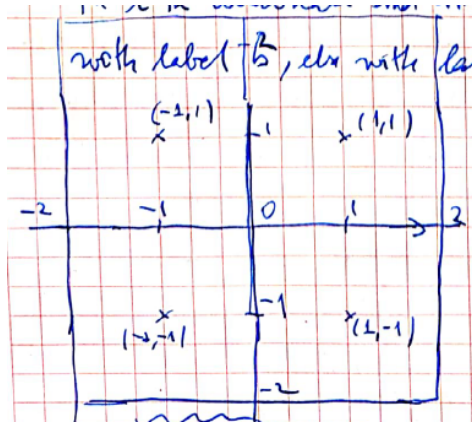 with label -5, else with
(-1,1)
1
(1,1)
-2
-1
0
1
2
-1
(-1,-1)
(1,-1)
-2